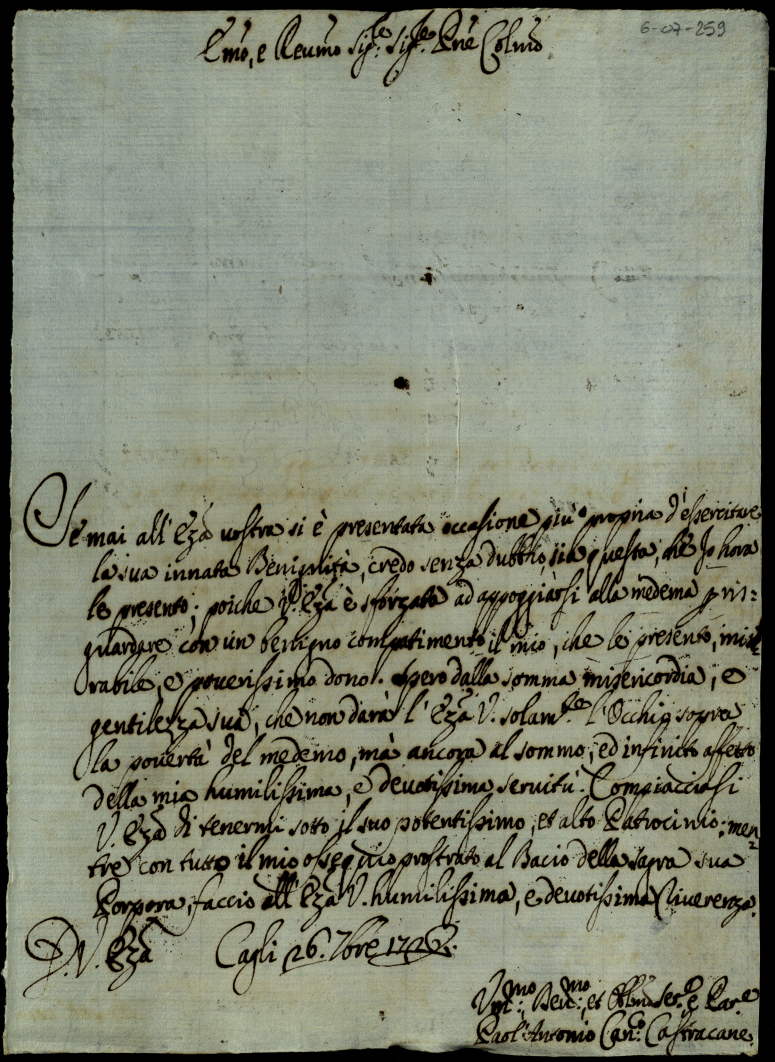 6-07-259
Emo, e Reumo Sig:re Sig:re Pne Colmo
Se mai all'Eza uostra si è presentata occasione più propria d'essercitare
la sua innata Benignità, credo senza dubbio sia questa, che Io hora
le presento; poiche V. Eza è sforzata ad appoggiarsi alla medema p ris=
guardare con un benigno compatimento il mio, che le presento, mise=
rabile, e pouerissimo dono. Spero dalla somma misericordia, e
gentilezza sua, che non darà l'Eza V. solam.te l'Occhio sopra
la pouertà del medemo, mà ancora al sommo, ed infinito affetto
della mia humilissima, e deuotissima seruitù. Compiacciasi
V. Eza di tenermi sotto il suo potentissimo, et alto Patrocinio; men=
tre con tutto il mio ossequio prostrato al Bacio della sagra sua
Porpora, faccio all'Eza V. humilissima, e deuotissima Riuerenza.
D. V. Eza Cagli 26. 7bre
Vmo:, Deu:mo, et Obl:mo Ser.e
Paol'Antonio Can:co Castracane